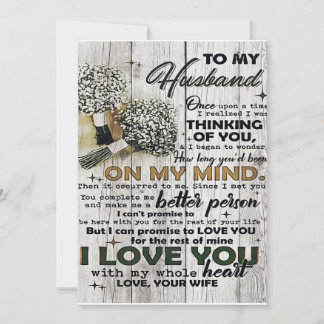 TO MY
Husband
Once upon a time
I realized I was
THINKING
OF YOU,
& I began to wonder
How long you'd been
ON MY MIND.
Then it occurred to me. Since I met you
You complete me
and make me a better person
I can't promise to
be here with you for the rest of your life
But I can promise to LOVE YOU
for the rest of mine
I LOVE YOU
with my whole heart
LOVE, YOUR WIFE